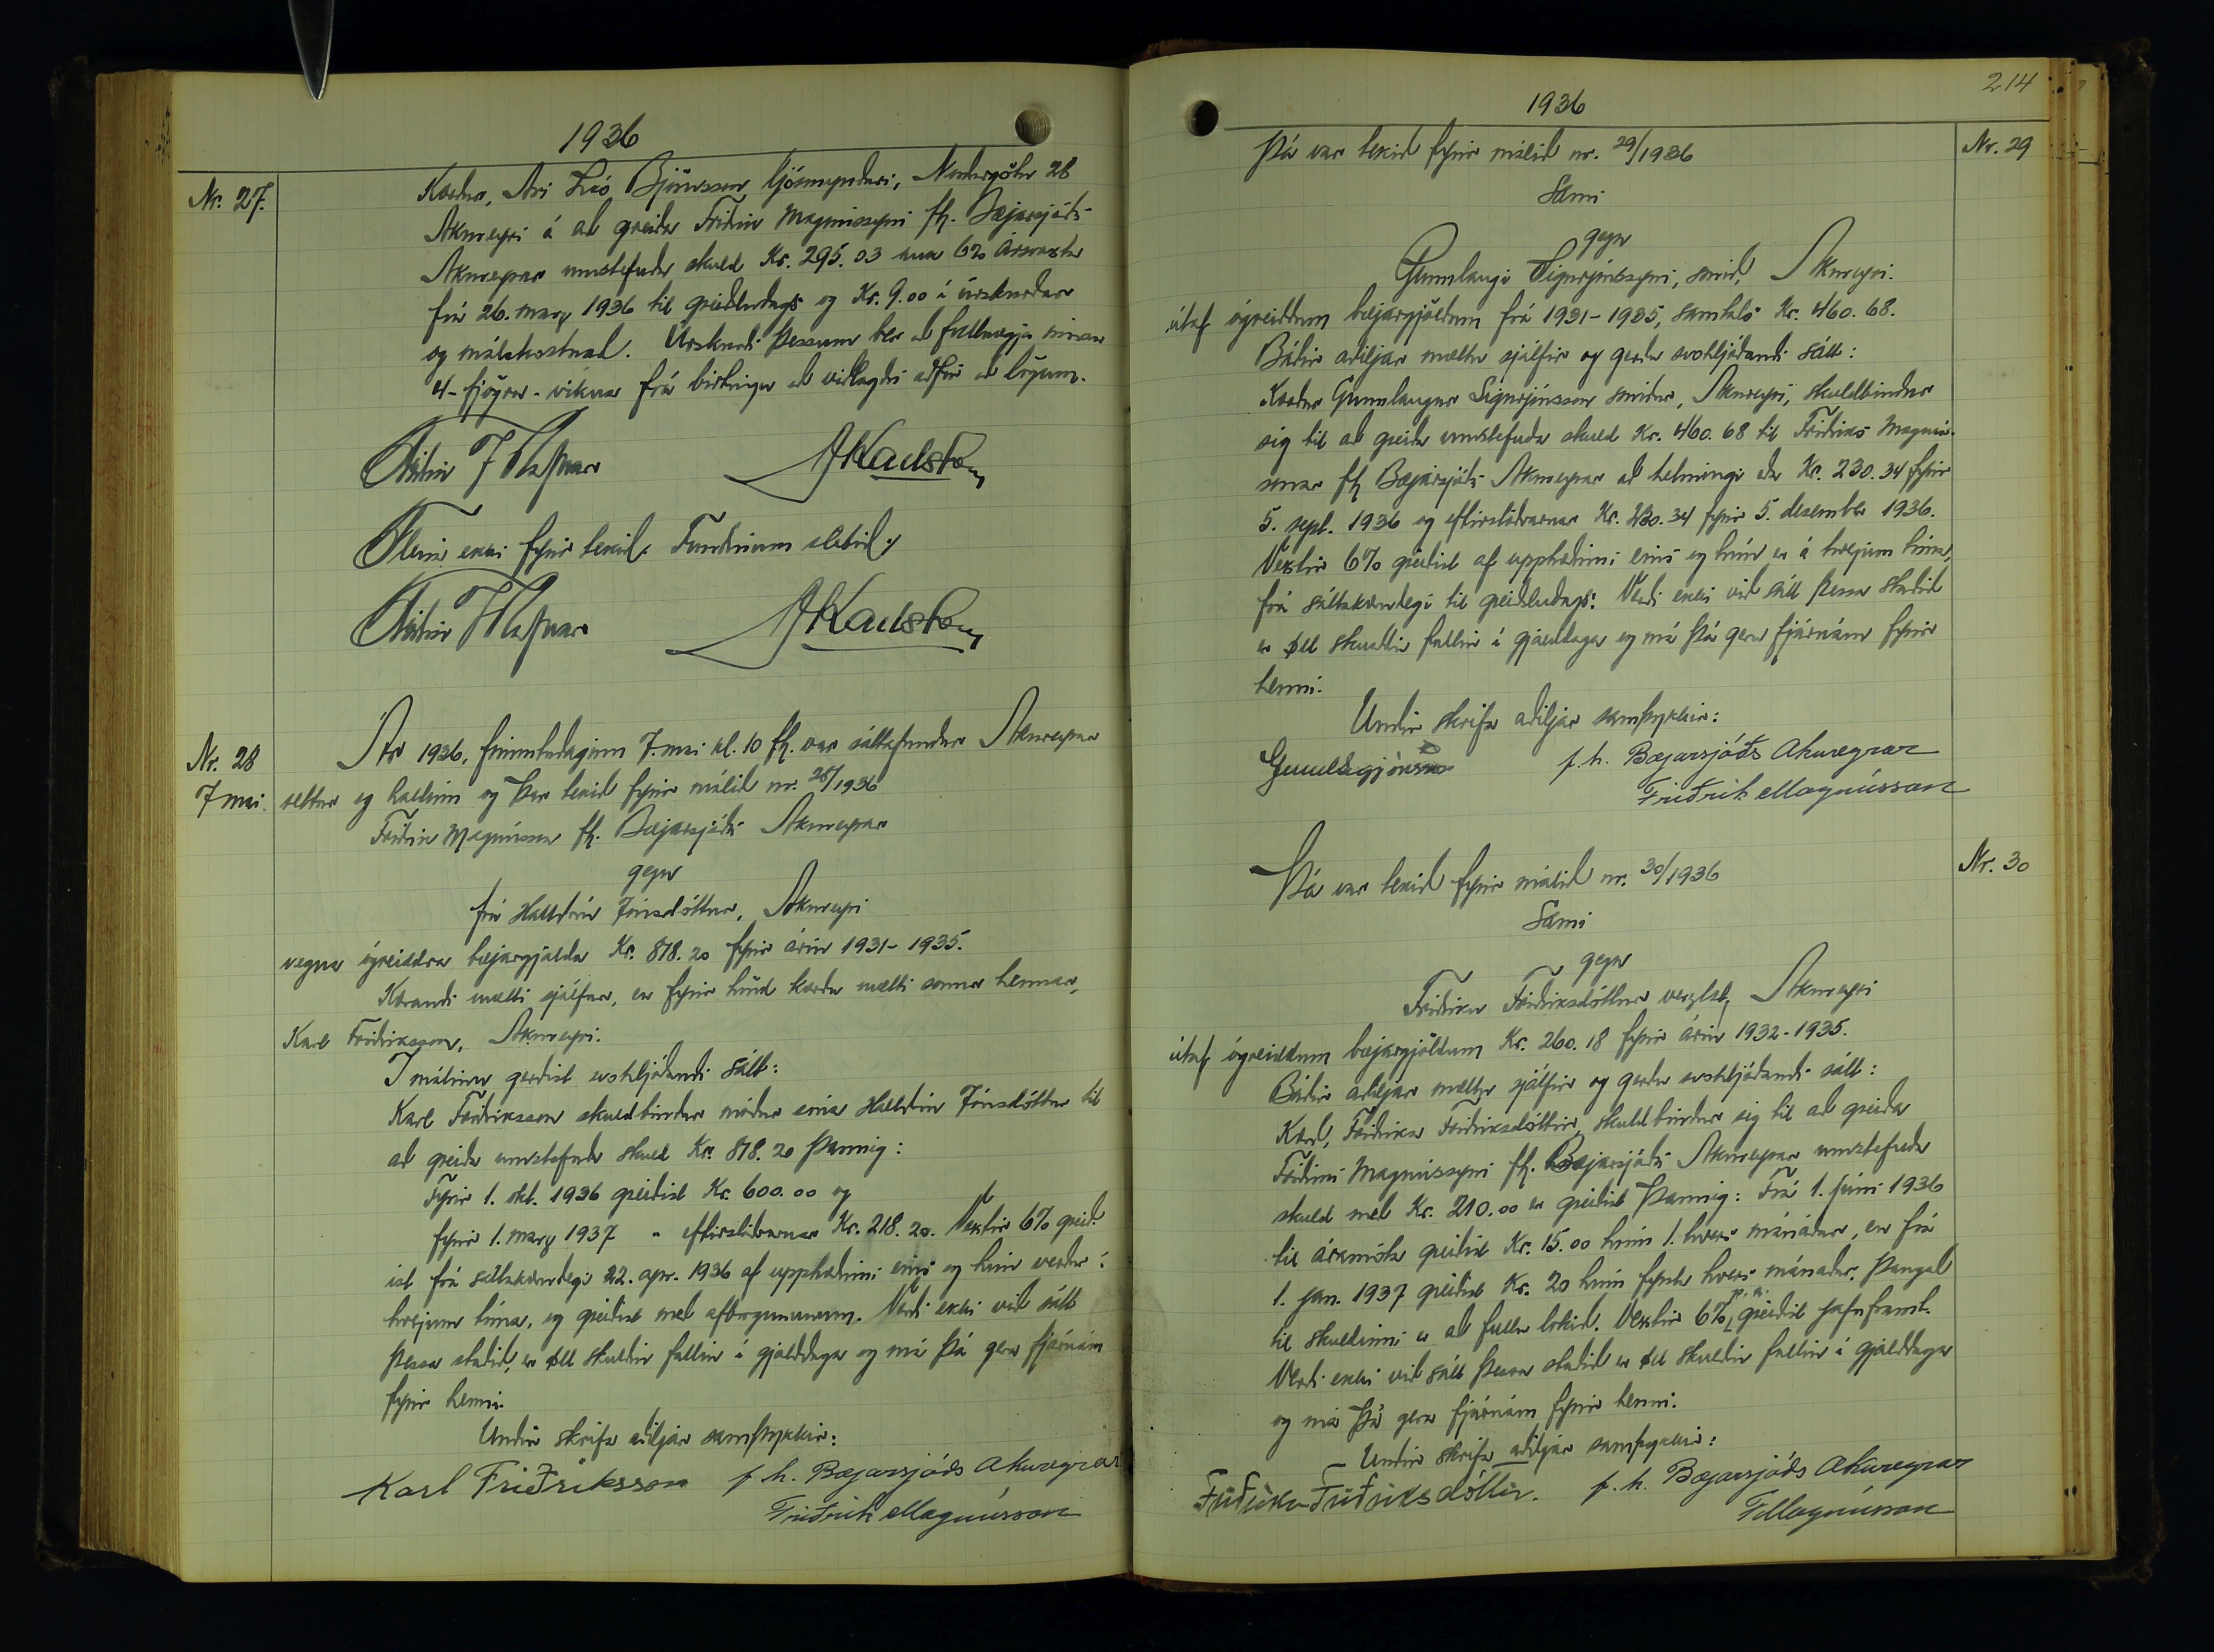 1936
Nr. 27.
Kærður, Ari Leó Björnsson, ljósmyndari, Norðurgötu 28
Akureyri á að greiða Friðrik Magnússyni fh. Bæjarsjóðs
Akureyrar umstefnda skuld Kr. 295.03 auk 6% ársvaxta
frá 26. marz 1936 til greiðsludags og Kr. 9.00 í úrskurðar
og málskostnað. Úrskurði þessum ber að fullnægja innan
4-fjögra-vikna frá birtingu að viðlagðri aðför að lögum.
Fleira ekki fyrir tekið. Fundinum slitið.
Nr. 28
7 maí.
Ár 1936, fimmtudaginn 7. maí kl. 10 fh. var sáttafundur Akureyrar
settur og haldinn og þar tekið fyrir málið nr. 28/1936
Friðrik Magnússon fh. Bæjarsjóðs Akureyrar
gegn
frú Halldóru Jónsdóttur, Akureyri
vegna ógreiddra bæjargjalda Kr. 818.20 fyrir árin 1931-1935.
Kærandi mætti sjálfur, en fyrir hönd kærðu mætti sonur hennar,
Karl Friðriksson, Akureyri.
Í málinu gerðist svohljóðandi sátt:
Karl Friðriksson skuldbindur móður sína Halldóru Jónsdóttur til
að greiða umstefnda skuld Kr. 818.20 þannig:
Fyrir 1. okt. 1936 greiðist Kr. 600.00 og
fyrir 1. marz 1937 " eftirstöðvarnar Kr. 218.20. Vextir 6% greið-
ist frá sáttakærudegi 22. apr. 1936 af upphæðinni eins og hún verður í
hvejum tíma, og greiðist með afborgununum. Verði ekki við sátt
þessa staðið, er öll skuldin fallin í gjalddaga og má þá gera fjárnám
fyrir henni.
Undir skrifa aðiljar samþykkir:
Karl Friðriksson f. h. Bæjarsjóðs Akureyrar
Friðrik Magnússon
214
1936
Nr. 29
Þá var tekið fyrir málið nr. 29/1936
Sami
gegn
Gunnlaugi Sigurjónssyni, smið, Akureyri.
útaf ógreiddum bæjargjöldum frá 1931-1935, samtals Kr. 460.68.
Báðir aðiljar mættu sjálfir og gerðu svohljóðandi sátt:
Kærður Gunnlaugur Sigurjónsson smiður, Akureyri, skuldbindur
sig til að greiða umstefnda skuld Kr. 460.68 til Friðriks Magnús-
sonar fh Bæjarsjóðs Akureyrar að helmingi eða Kr. 230.34 fyrir
5. sept. 1936 og eftirstöðvarnar Kr. 230.34 fyrir 5. desember 1936.
Vextir 6% greiðist af upphæðinni eins og hún er á hvejum tíma,
frá sáttakærudegi til greiðsludags. Verði ekki við sátt þessa staðið
er öll skuldin fallin í gjalddaga og má þá gera fjárnám fyrir
henni.
Undir skrifa aðiljar samþykkir:
f. h. Bæjarsjóðs Akureyrar
Friðrik Magnússon
Nr. 30
Þá var tekið fyrir málið nr. 30/1936
Sami
gegn
Friðriku Friðriksdóttur verzlst, Akureyri
útaf ógreiddum bæjargjöldum Kr. 260.18 fyrir árin 1932-1935.
Báðir aðiljar mættu sjálfir og gerðu svohljóðandi sátt:
Kærð, Friðrika Friðriksdóttir, skuldbindur sig til að greiða
Friðrik Magnússyni fh. Bæjarsjóðs Akureyrar umstefnda
skuld með Kr. 210.00 er greiðist þannig: Frá 1. júní 1936
til áramóta greiðist Kr. 15.00 hinn 1. hvers mánaðar, en frá
1. jan. 1937 greiðist Kr. 20 hinn fyrsta hvers mánaðar, þangað
til skuldinni er að fullu lokið. Vextir 6% p. a. greiðist jafnframt.
Verði ekki við sátt þessa staðið er öll skuldin fallin í gjalddaga
og má þá gera fjárnám fyrir henni.
Undir skrifa aðiljar samþykkir:
Friðrika Friðriksdóttir. f. h. Bæjarsjóðs Akureyrar
FMagnússon